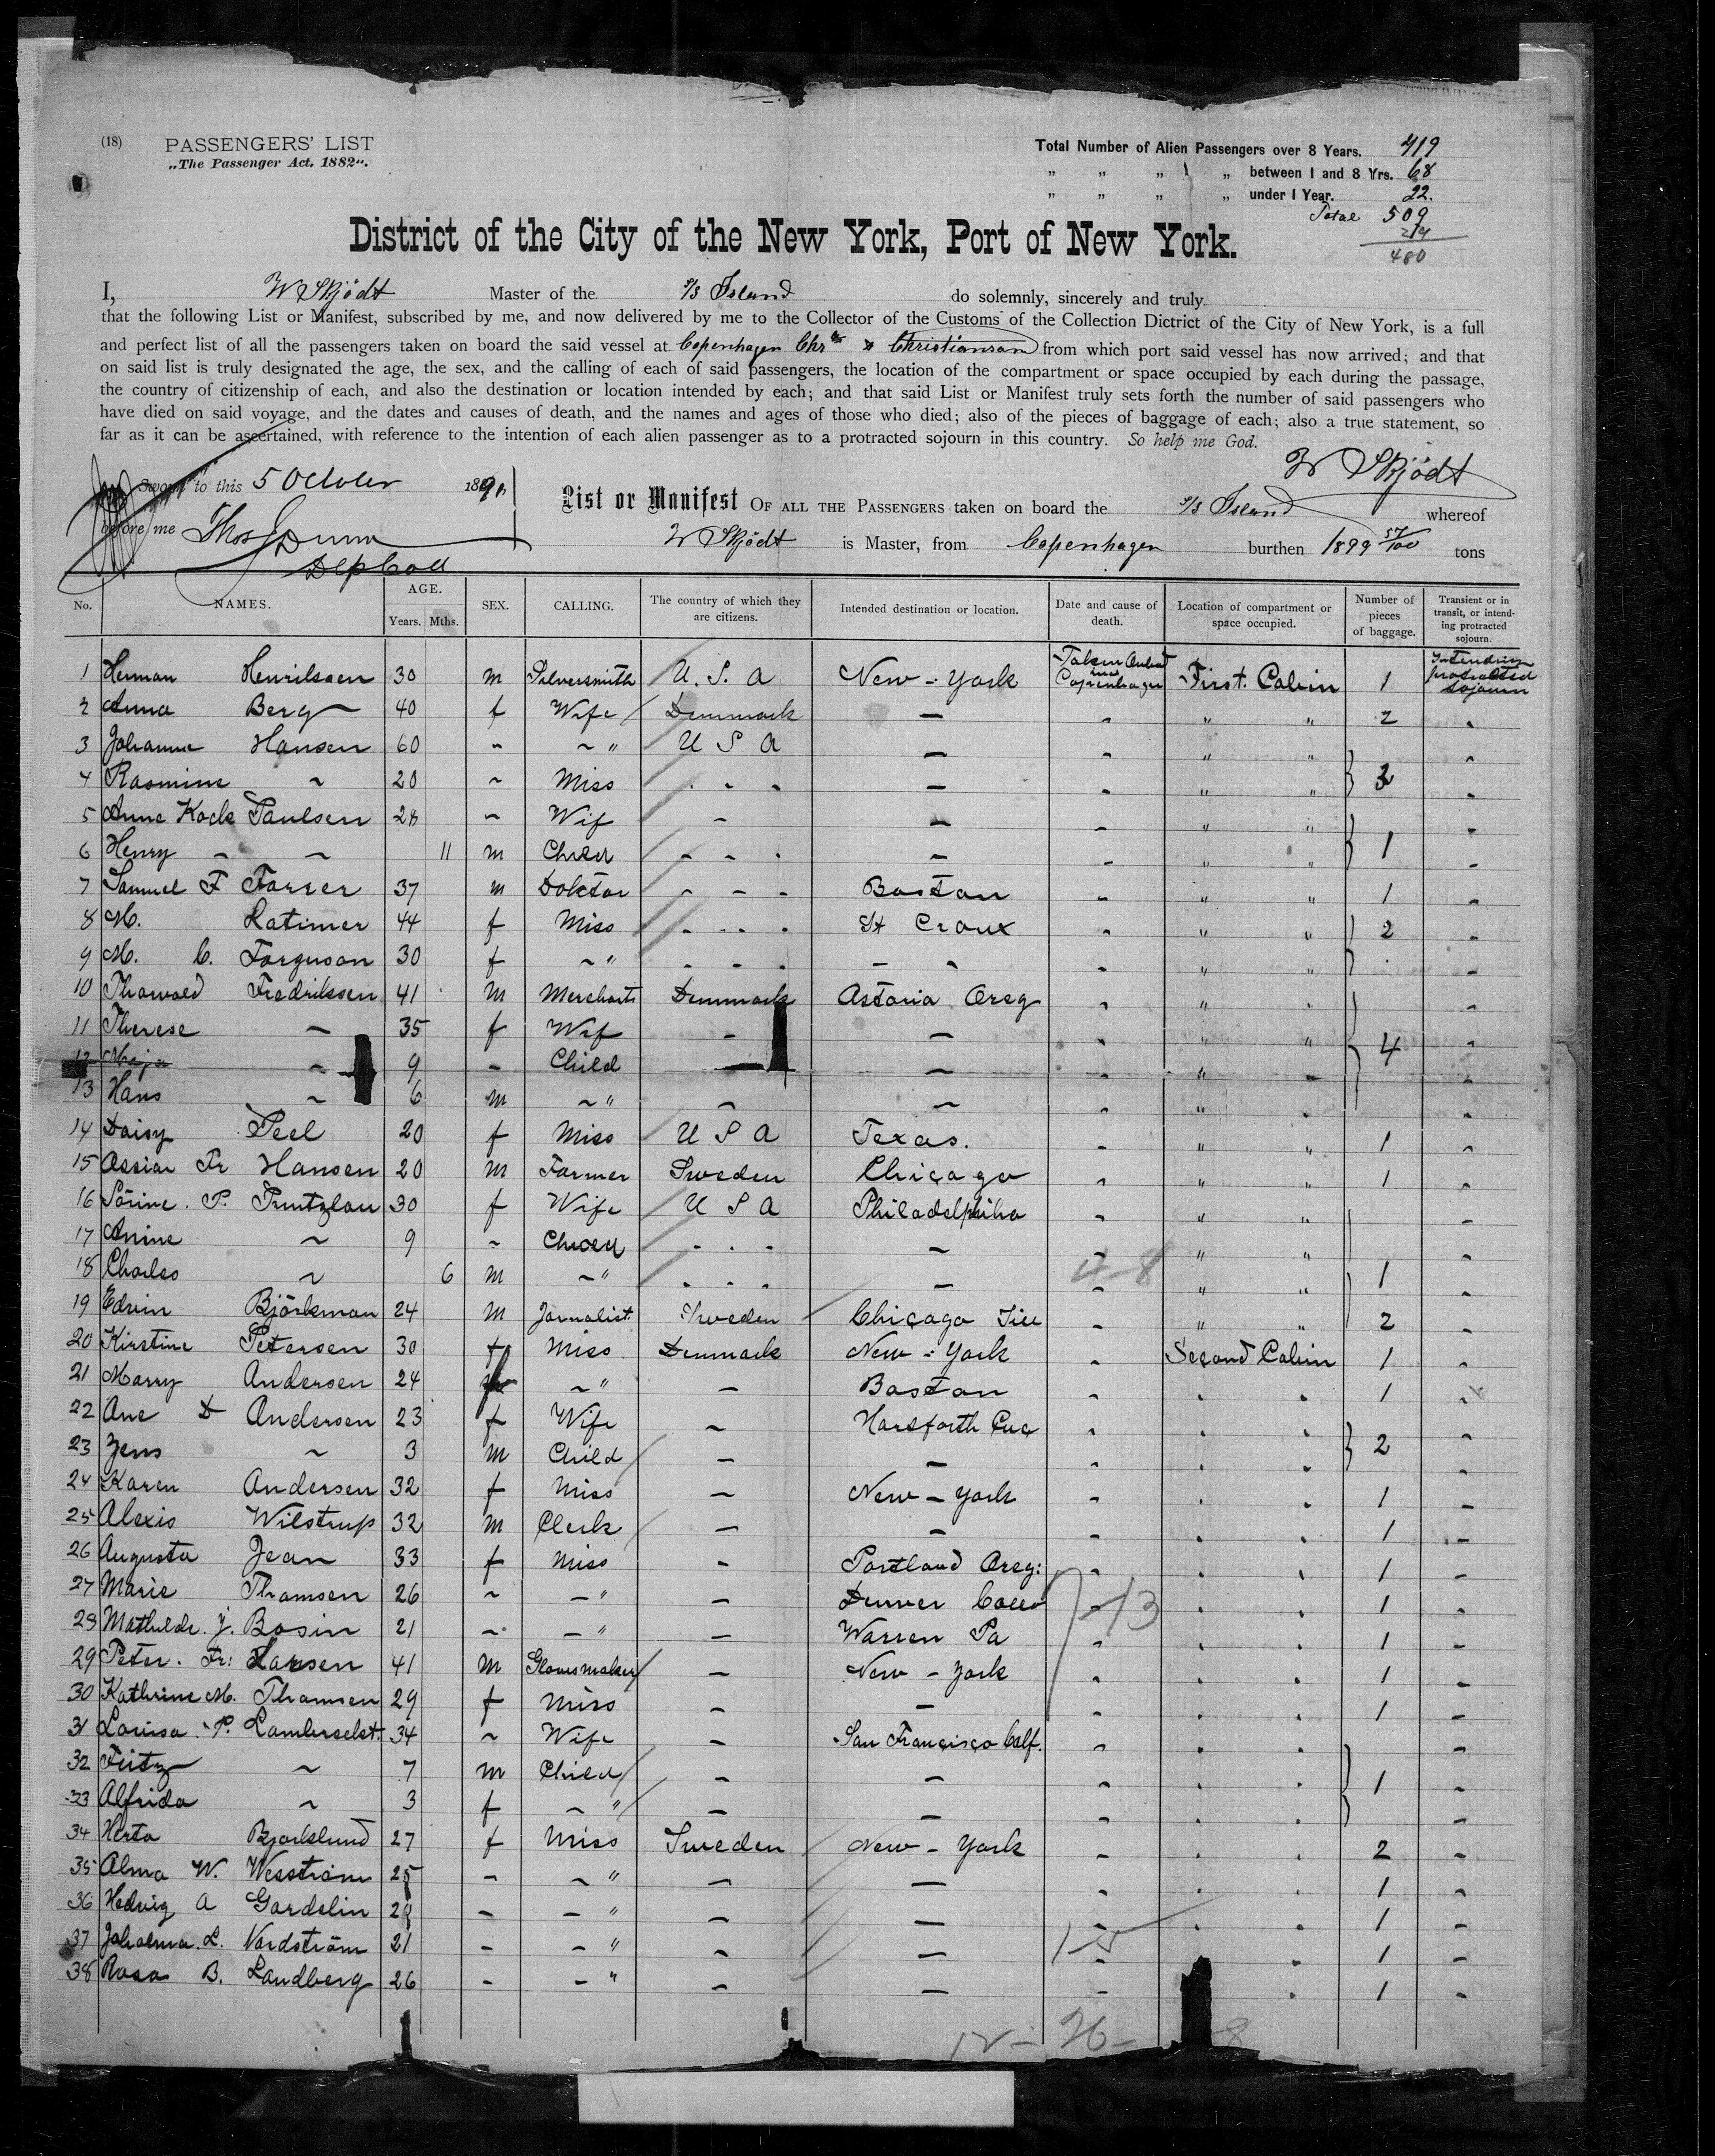 (18)
PASSENGERS' LIST
„The Passenger Act, 1882".
Total Number of Alien Passengers over 8 Years. 419
„ „ „ „ between 1 and 8 Yrs. 68
„ „ „ „ under 1 Year. 22.
Total 509
480
District of the City of the New York, Port of New York.
I, W Skjödt Master of the S/S Island do solemnly, sincerely and truly
that the following List or Manifest, subscribed by me, and now delivered by me to the Collector of the Customs of the Collection District of the City of New York, is a full
and perfect list of all the passengers taken on board the said vessel at Copenhagen Chr & Christiansand from which port said vessel has now arrived; and that
on said list is truly designated the age, the sex, and the calling of each of said passengers, the location of the compartment or space occupied by each during the passage,
the country of citizenship of each, and also the destination or location intended by each; and that said List or Manifest truly sets forth the number of said passengers who
have died on said voyage, and the dates and causes of death, and the names and ages of those who died; also of the pieces of baggage of each; also a true statement, so
far as it can be ascertained, with reference to the intention of each alien passenger as to a protracted sojourn in this country. So help me God.
W Skjödt
Sworn to this 5 October 1891
List or Manifest OF ALL THE PASSENGERS taken on board the S/S Island whereof
before me Thos J Dunn
W Skjödt is Master, from Copenhagen burthen 1899 57/100 tons
Dep Coll
No. NAMES. AGE. Years. Mths. SEX. CALLING. The country of which they are citizens. Intended destination or location. Date and cause of death. Location of compartment or space occupied. Number of pieces of baggage. Transient or in transit, or intending protracted sojourn.
1 Herman Henriksen 30 m Silversmith U. S. A New-York Copenhagen First Cabin 1 Intending protracted sojourn
2 Anna Berg 40 f Wife Denmark — " " 2
3 Johanne Hansen 60 ~ ~ " U S A — " "
4 Rasmine ~ 20 ~ Miss - - - — " " 3
5 Anne Kock Paulsen 28 ~ Wif - — " "
6 Henry - ~ 11 m Child - - - — " " 1
7 Samuel F Farrer 37 m Doktor - - - Boston " " 1
8 M. Latimer 44 f Miss - - - St Croux " " 2
9 M. C. Forguson 30 f ~ " - - - — " "
10 Thorvald Fredriksen 41 m Merchant Denmark Astoria Oreg "
11 Therese ~ 35 f Wif - — " " 4
12 Maja ~ 9 - Child — — "
13 Hans ~ 6 m ~ " ~ — "
14 Daisy Peel 20 f Miss U S A Texas. " " 1
15 Assiar Fr Hansen 20 m Farmer Sweden Chicago " " 1
16 Sörine. P. Pruntzlau 30 f Wife U S A Philadelphiha " "
17 Anine ~ 9 ~ Child - - - — " "
18 Charles ~ 6 m ~ " - - - — " " 1
19 Edvin Björkman 24 m Jornalist Sweden Chicago Ill " " 2
20 Kirstine Petersen 30 f Miss Denmark New-York Second Cabin 1
21 Marry Andersen 24 f ~ " — Boston 1
22 Ane D Andersen 23 f Wife ~
23 Jens ~ 3 m Child — — 2
24 Karen Andersen 32 f Miss — New-York 1
25 Alexis Wilstrup 32 m Clerk — — 1
26 Augusta Jean 33 f Miss - Portland Oreg: 1
27 Marie Thomsen 26 ~ — " — Denver Collo 1
28 Mathilde. J. Bosin 21 ~ — " — Warren Pa 1
29 Peter. Fr: Larsen 41 m Glovesmaker — New-York 1
30 Kathrine M. Thomsen 29 f Miss — — 1
31 Lovisa. P. 34 ~ Wife — San Francisco Calf.
32 Fritz ~ 7 m Child — — 1
33 Alfrida ~ 3 f ~ " — —
34 Herta Bjorklund 27 f Miss Sweden New-York 2
35 Alma W. Wesström 25 - ~ " — — 1
36 Hedvig A Gardelin 28 - — " — — 1
37 L. Nordström 21 - ~ " — — 1
38 Rosa B. Landberg 26 - — " — — 1